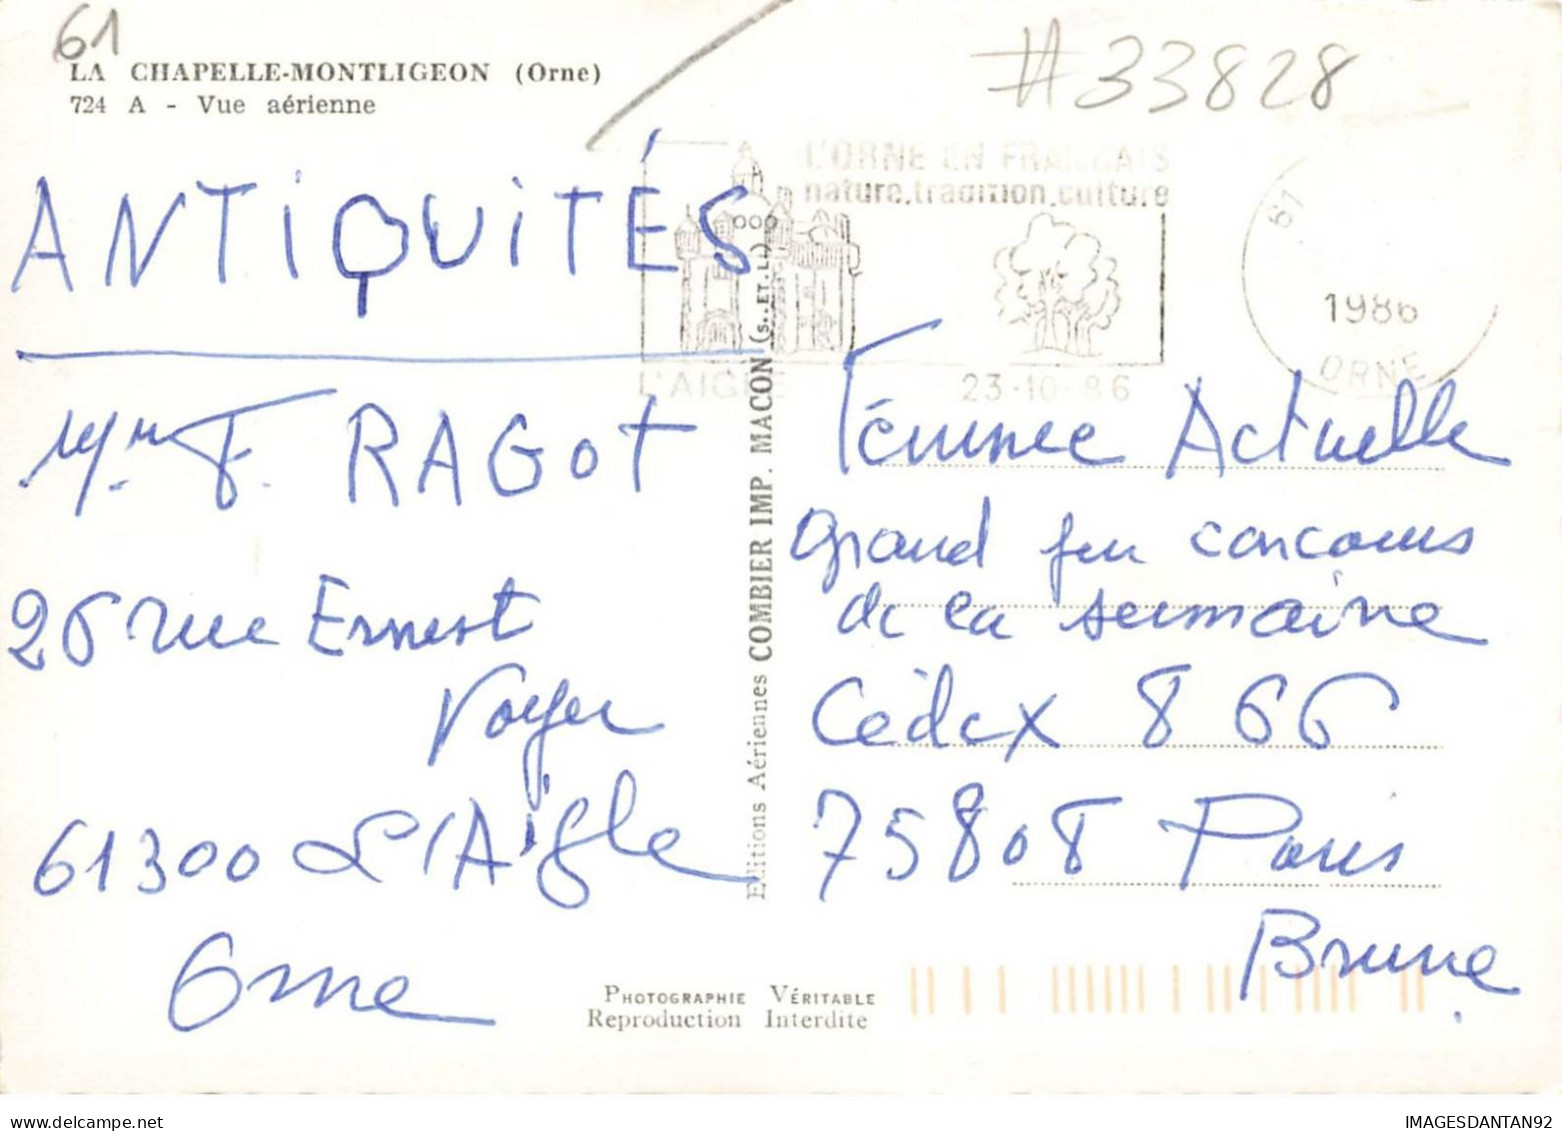 61
LA CHAPELLE-MONTLIGEON (Orne)
724 A - Vue aérienne
#33828
L'ORNE EN FRANCAIS
nature.tradition.culture
L'AIGLE
23-10-86
61
1986
ORNE
ANTIQUITÉS
Mm F. RAGOT
26 rue Ernest
Voyer
61300 L'Aigle
Orne
Editions Aériennes COMBIER IMP. MACON (S.-ET-L.)
Femme Actuelle
Grand jeu concours
de la semaine
Cédex 866
75808 Paris
Brune
PHOTOGRAPHIE VÉRITABLE
Reproduction Interdite
delcampe.net
IMAGESDANTAN92